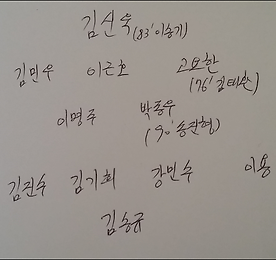 김신욱(83' 이승기)
김민우 이근호 고요한
(76' 김태환)
이명주 박종우
(90' 송진형)
김진수 김기희 강민수 이용
김승규